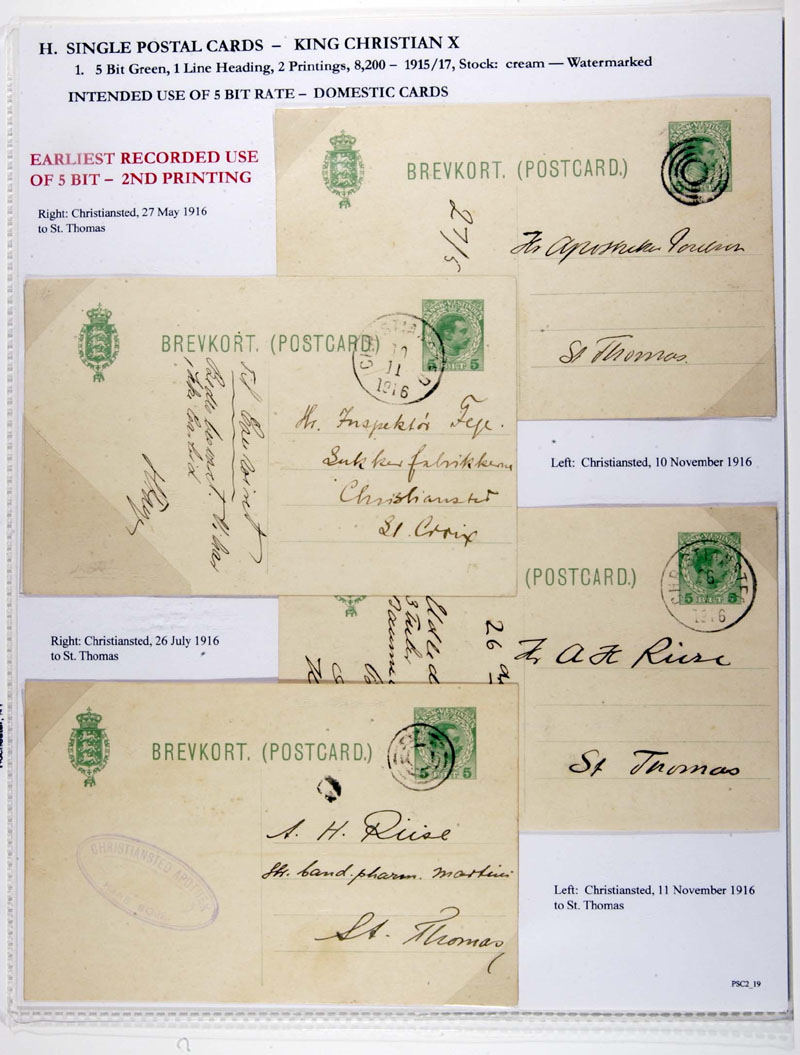 H. SINGLE POSTAL CARDS – KING CHRISTIAN X
1. 5 Bit Green, 1 Line Heading, 2 Printings, 8,200 – 1915/17, Stock: cream — Watermarked
INTENDED USE OF 5 BIT RATE – DOMESTIC CARDS
EARLIEST RECORDED USE
OF 5 BIT – 2ND PRINTING
Right: Christiansted, 27 May 1916
to St. Thomas
BREVKORT. (POSTCARD.)
27/5
Hr Apotheker
St Thomas.
BREVKORT. (POSTCARD)
CHRISTIANSTED
10
11
1916
5 BIT 5
Hr. Inspektör Feje.
Sukkerfabrikkerne
Christiansted
St. Croix
Left: Christiansted, 10 November 1916
(POSTCARD.)
CHRISTIANSTED
1916
5 BIT 5
26
Hr A H Riise
St Thomas
Right: Christiansted, 26 July 1916
to St. Thomas
BREVKORT. (POSTCARD.)
5 BIT 5
A. H. Riise
Hr. cand. pharm. Martini
St. Thomas
CHRISTIANSTED APOTHEK
Left: Christiansted, 11 November 1916
to St. Thomas
PSC2_19